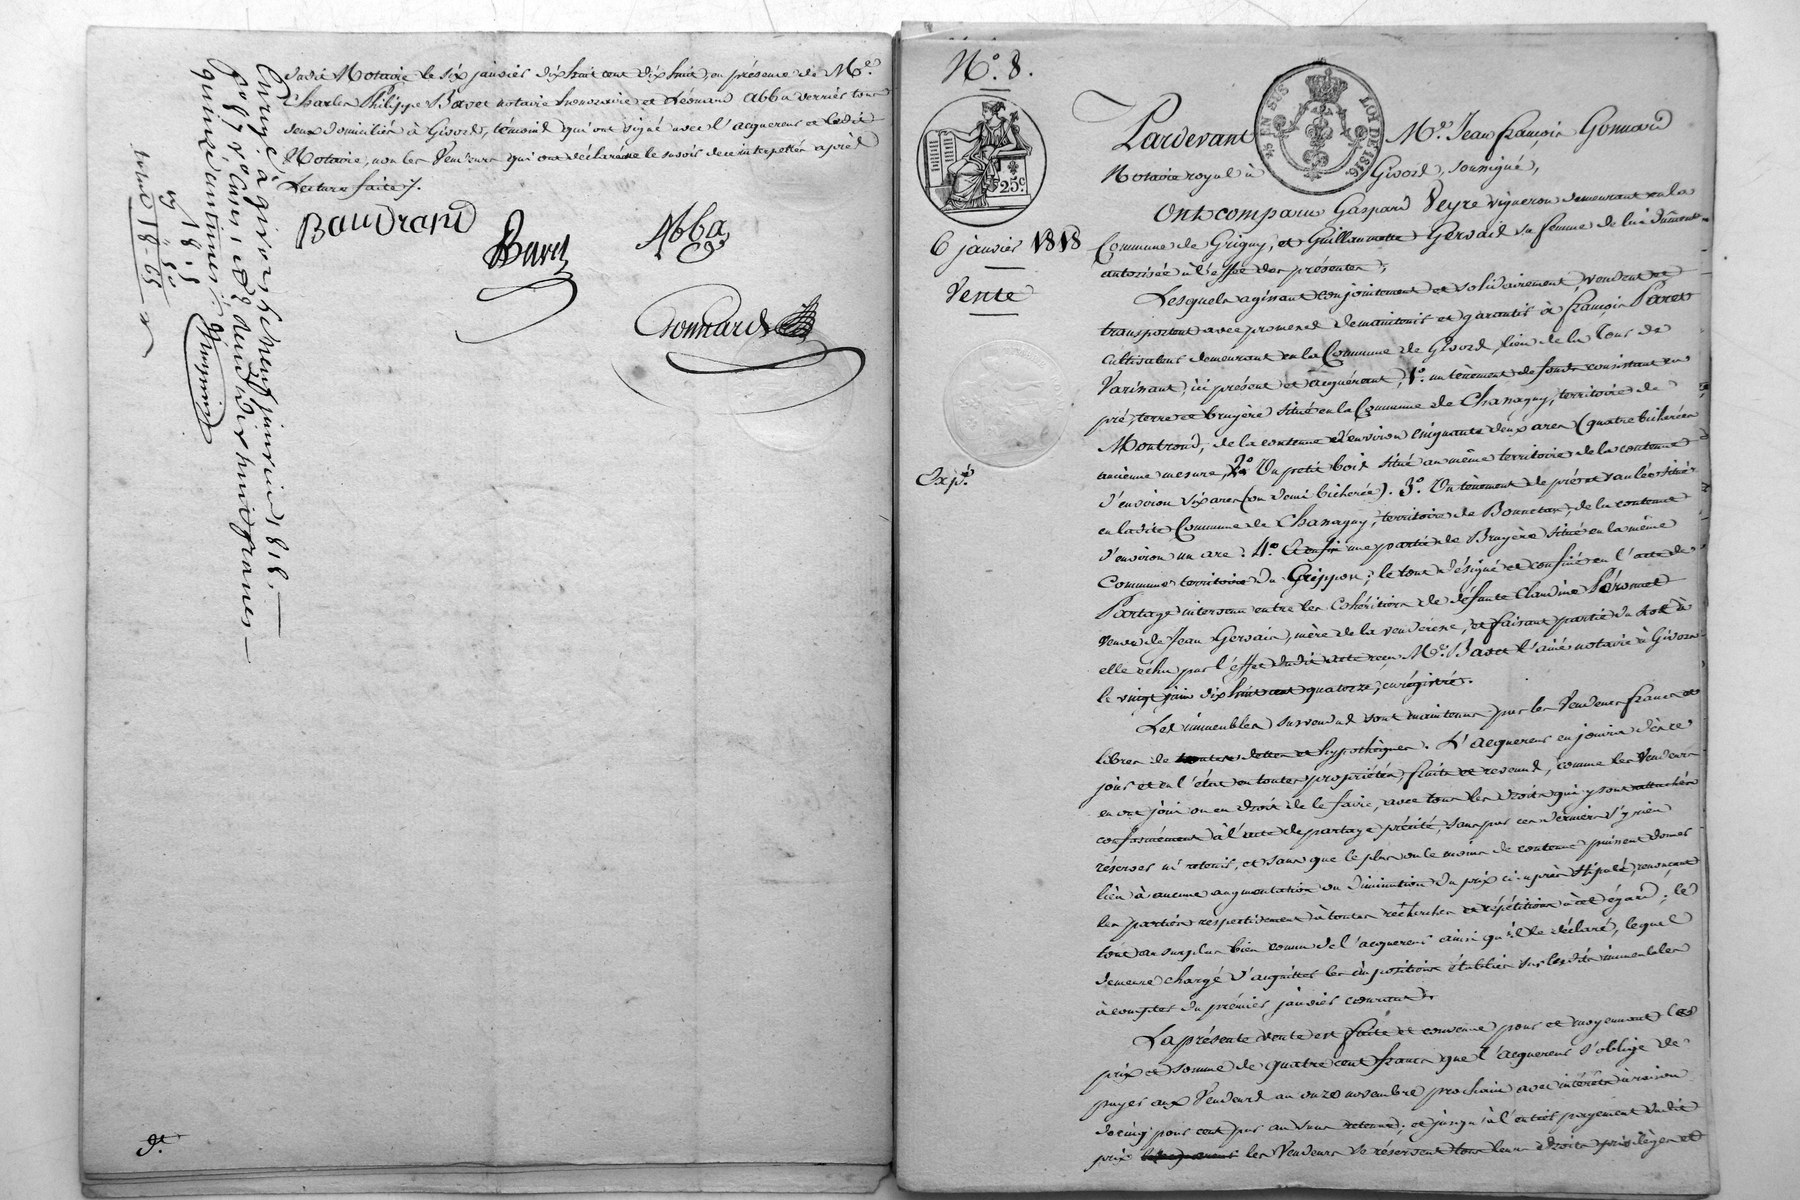 dudit Notaire le six janvier dix huit cent dix huit, en présence de Me.
Charles Philippe Bavet notaire honoraire et Léonard Abba verrier tous
deux domiciliés à Givord, témoins qui ont signé avec l'acquereur et ledit
Notaire, non les Vendeurs qui ont déclaré ne le savoir de ce interpellés après
Lecture faite ./.
Baudrand
Bavet
Abba
Gonnard
Enregé. à givors le neuf janvier 1818.
fo. 87 Vo. Cases 1 et 2 deux dix huit francs
quinze centimes
18-15
g.t
No. 8.
25c.
6 janvier 1818
Vente
Exp.é
EN SUS
LOI DE 1816
Pardevant Me. Jean françois Gonnard
Notaire royal à Givord, soussigné,
Ont comparu Gaspard Veyre vigneron demeurant en la
Commune de Grigny, et Guillaumette Gervais sa femme de lui dûment
autorisée à l'effet des présentes,
Lesquels agissant conjointement et solidairement, vendent et
transportent avec promesse de maintenir et garantir à françois Paret
cultivateur demeurant en la Commune de Givord, lieu de la Tour de
Varissant, ici présent et acquérant, 1o. un tènement de fonds consistant en
pré, terre et bruyère situé en la Commune de Chanagny, territoire de
Montrond, de la contenue d'environ cinquante deux ares (quatre bicherées
ancienne mesure, 2o. Un petit bois situé au même territoire de la contenue
d'environ six ares (ou demi bicherée). 3o. Un tènement de pré et saulée situé
en ladite Commune de Chanagny, territoire de Bonnetan, de la contenue
d'environ un are. 4o. Et enfin une partie de Bruyère située en la même
Commune territoire du Grippon; le tout désigné et confiné en l'acte de
Partage intervenu entre les Cohéritiers de défunte Claudine Péronnet
veuve de Jean Gervais, mère de la venderesse, et faisant partie du lot à
elle échu par l'effet dudit acte reçu Me. Bavet l'ainé notaire à Givord
le vingt juin dix huit cent quatorze, enregistré.
Les immeubles susvendus sont maintenus par les Vendeurs francs et
libres de toutes dettes et hypothèques. L'acquereur en jouira dès ce
jour et en l'état en toutes propriétés, fruits et revenus, comme les Vendeurs
en ont joui ou eu droit de le faire, avec tous les droits qui y sont attachés
conformément à l'acte de partage précité, sans par ces derniers s'y rien
réserver ni retenir, et sans que le plus ou le moins de contenue puissent donner
lieu à aucune augmentation ou diminution du prix ci-après stipulé, renonçant
les parties respectivement à toutes recherches et répétitions à cet égard; le
tout au surplus bien connu de l'acquereur ainsi qu'il le déclare, lequel
demeure chargé d'acquitter les impositions établies sur lesdits immeubles
à compter du premier janvier courant.
La présente vente est faite et convenue pour et moyennant les
prix et somme de quatre cent francs que l'acquereur s'oblige de
payer aux Vendeurs au onze novembre prochain avec intérêts à raison
de cinq pour cent par an sans retenue; et jusqu'à l'entier payement dudit
prix les Vendeurs se réservent tous leurs droits, privilèges et